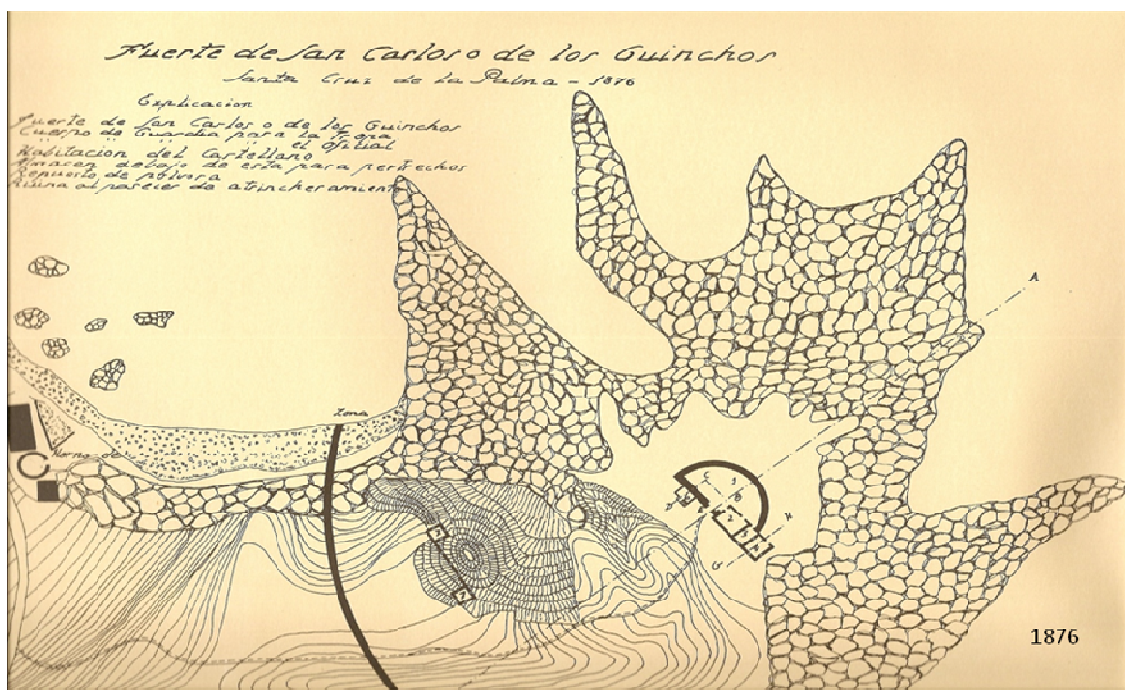 Fuerte de San Carlos o de los Guinchos
Santa Cruz de la Palma - 1876
Explicacion
Fuerte de San Carlos o de los Guinchos
Cuerpo de Guardia para la Tropa
" " " el oficial
Habitacion del Castellano
Almacen debajo de esta para pertrechos
Repuesto de polvora
Ruina al parecer de atrincheramiento
A
Zona
Horno de
1876